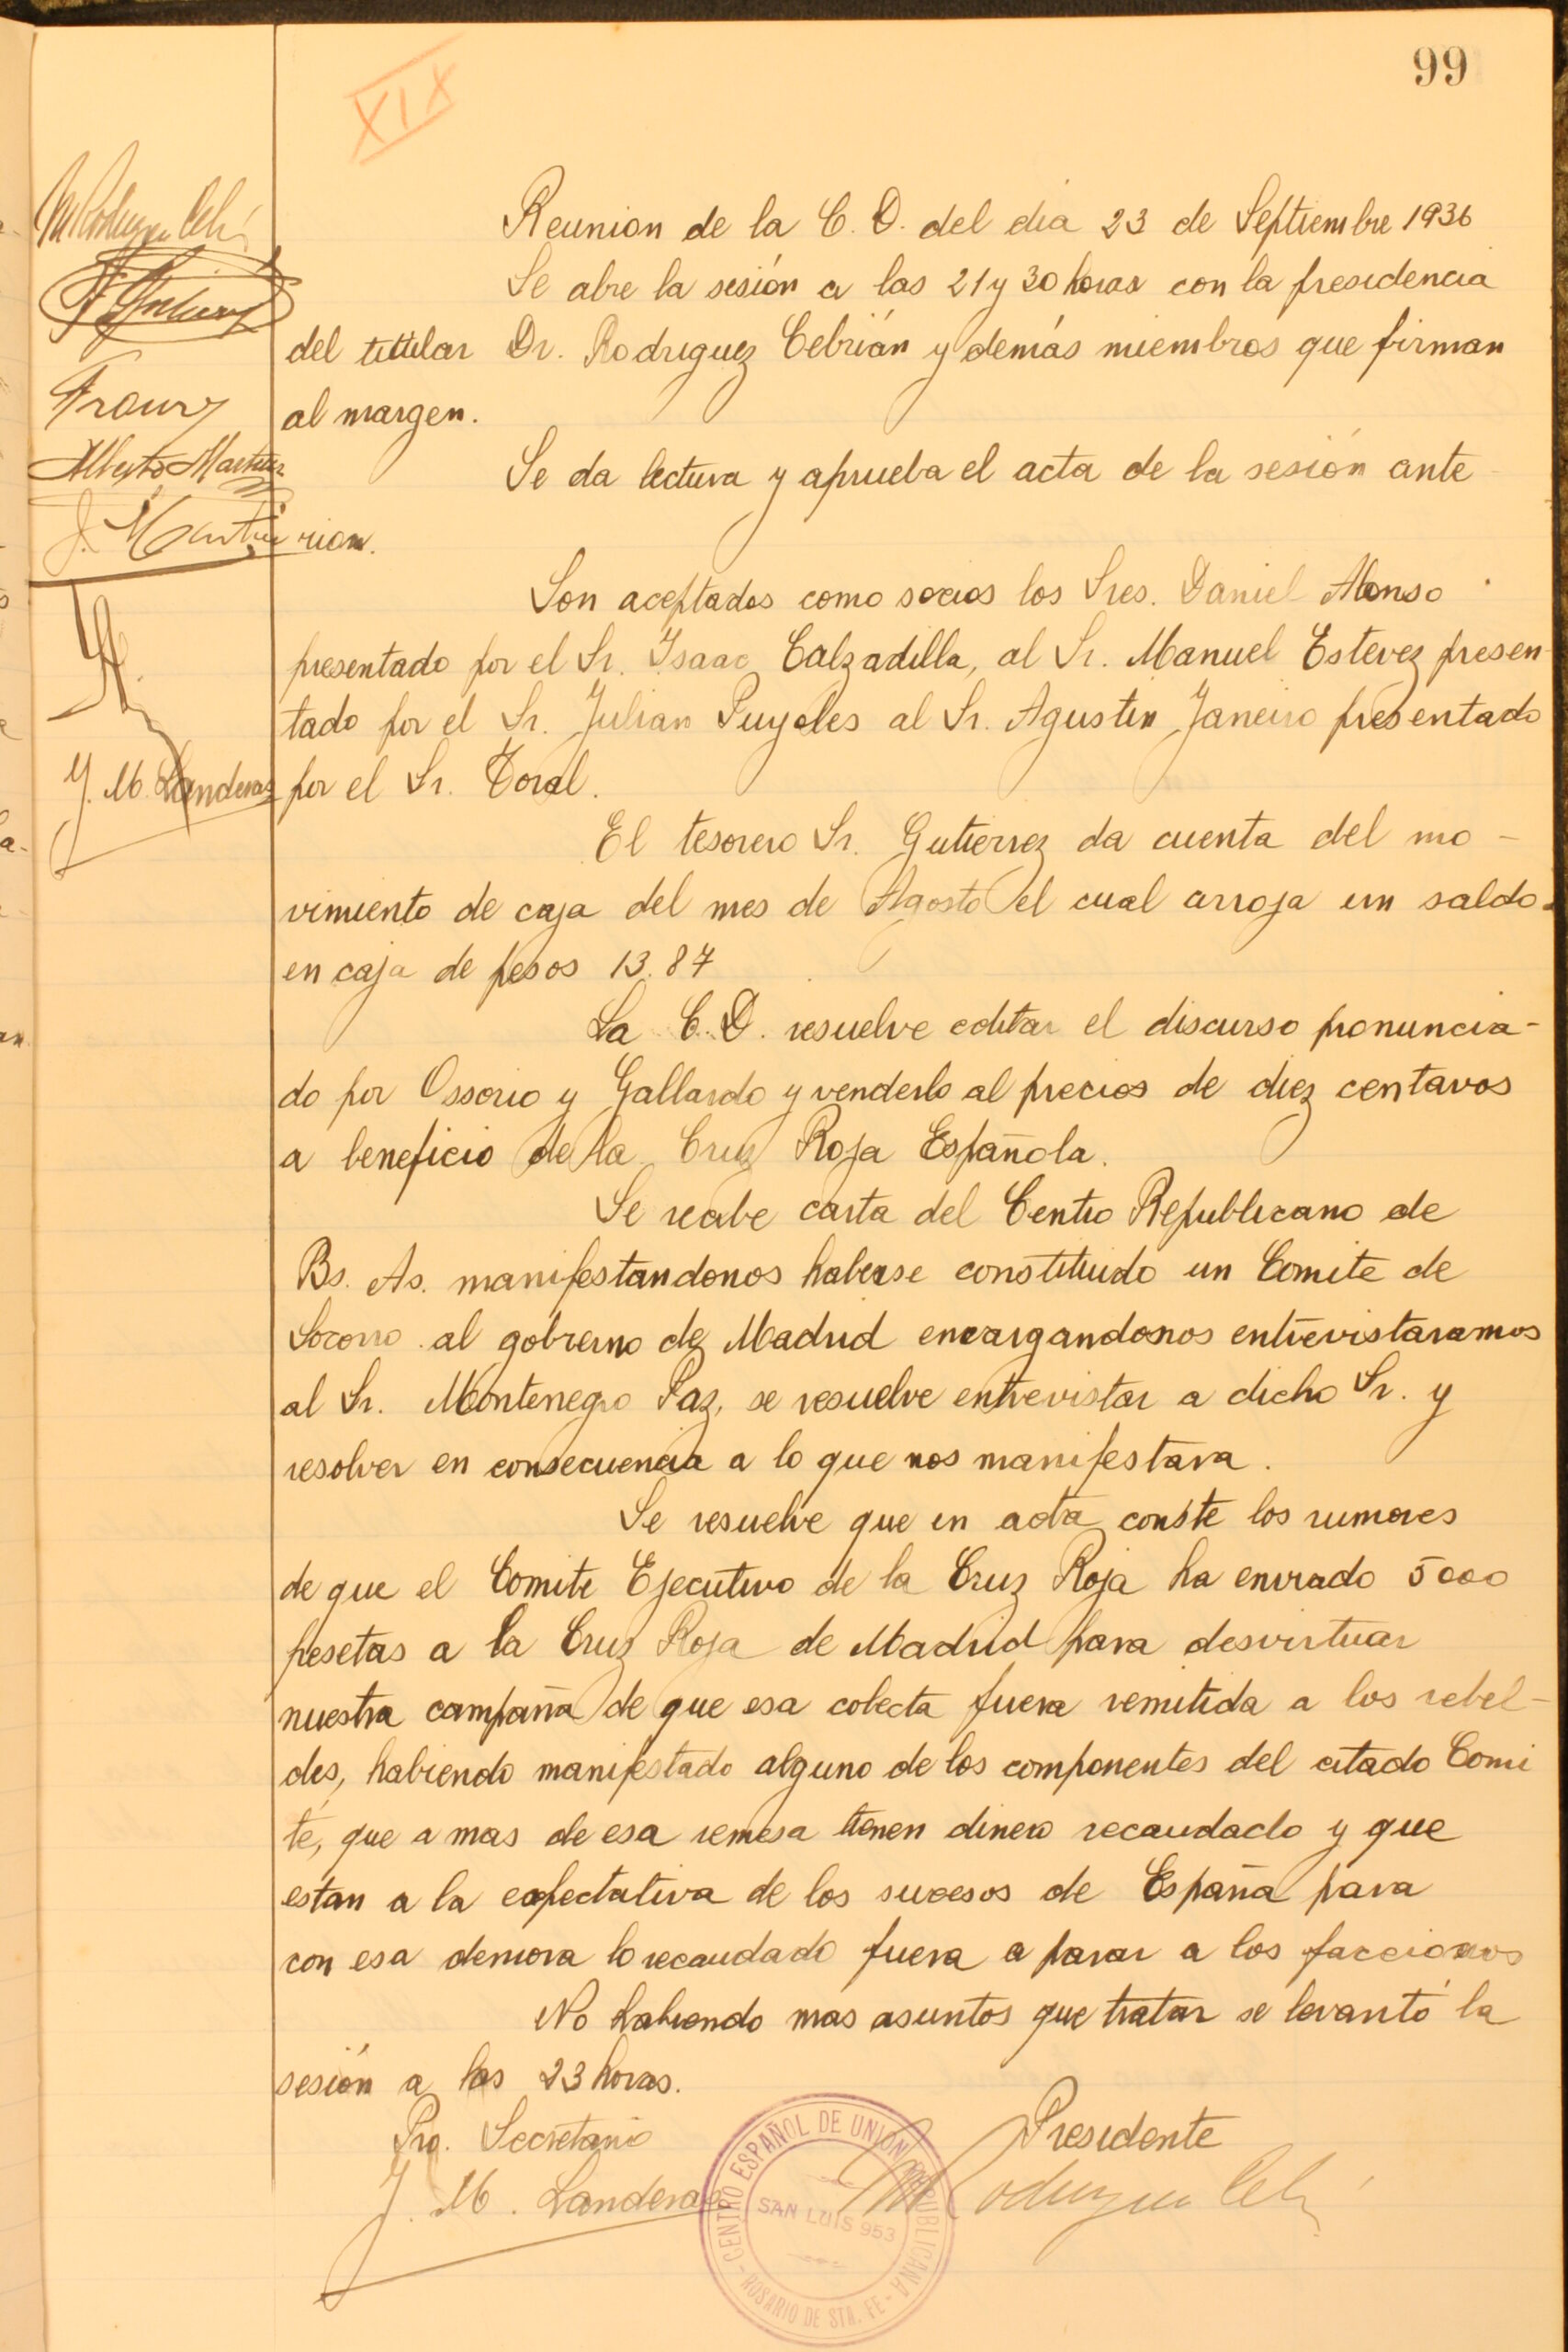 99
XIX
Reunion de la C. D. del dia 23 de Septiembre 1936
Se abre la sesión a las 21 y 30 horas con la presidencia
del titular Dr. Rodriguez Cebrián y demás miembros que firman
al margen.
Se da lectura y aprueba el acta de la sesión ante-
rior.
Son aceptados como socios los Sres. Daniel Alonso
presentado por el Sr. Isaac Calzadilla, al Sr. Manuel Estevez presen-
tado por el Sr. Julian Puyoles al Sr. Agustin Janeiro presentado
por el Sr. Toral.
El tesorero Sr. Gutierrez da cuenta del mo-
vimiento de caja del mes de Agosto el cual arroja un saldo
en caja de pesos 13.87
La C. D. resuelve editar el discurso pronuncia-
do por Ossorio y Gallardo y venderlo al precios de diez centavos
a beneficio de la Cruz Roja Española.
Se recibe carta del Centro Republicano de
Bs. As. manifestandonos haberse constituido un Comite de
Socorro al gobierno de Madrid encargandonos entrevistaramos
al Sr. Montenegro Paz, se resuelve entrevistar a dicho Sr. y
resolver en consecuencia a lo que nos manifestara.
Se resuelve que en acta conste los rumores
de que el Comite Ejecutivo de la Cruz Roja ha enviado 5000
pesetas a la Cruz Roja de Madrid para desvirtuar
nuestra campaña de que esa colecta fuera remitida a los rebel-
des, habiendo manifestado alguno de los componentes del citado Comi
té, que a mas de esa remesa tienen dinero recaudado y que
estan a la expectativa de los sucesos de España para
con esa demora lo recaudado fuera a parar a los facciosos
No habiendo mas asuntos que tratar se levantó la
sesión a las 23 horas.
Pro. Secretario
Presidente
J. M. Landeras
M Rodriguez Ceb
CENTRO ESPAÑOL DE UNION REPUBLICANA
SAN LUIS 953
ROSARIO DE STA. FE
M Rodriguez Ceb
Alberto Martinez
J. Martin
J. M. Landeras